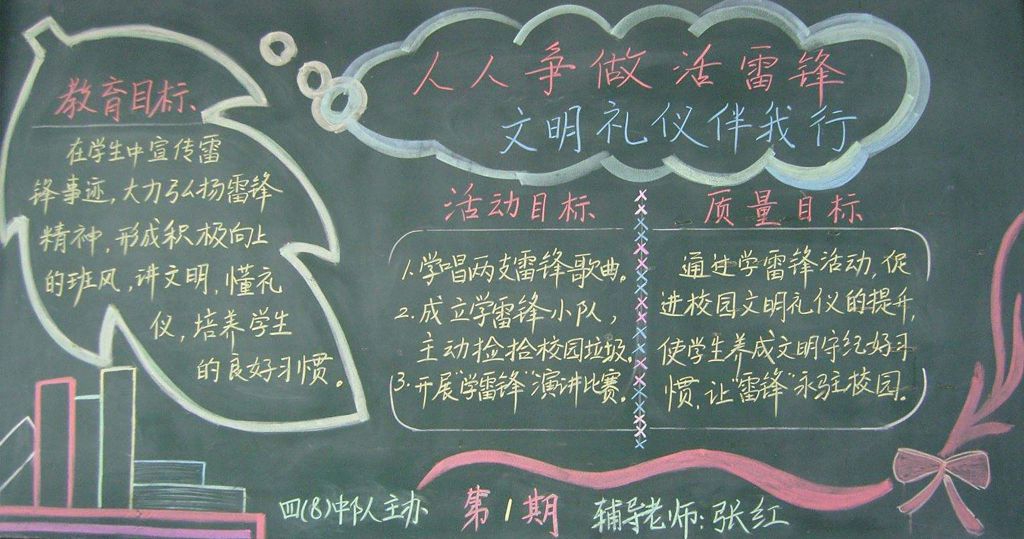 人人争做活雷锋
文明礼仪伴我行
教育目标
在学生中宣传雷
锋事迹，大力弘扬雷锋
精神，形成积极向上
的班风，讲文明，懂礼
仪，培养学生
的良好习惯。
活动目标
1.学唱两支雷锋歌曲。
2.成立学雷锋小队，
主动捡拾校园垃圾。
3.开展"学雷锋"演讲比赛。
质量目标
通过学雷锋活动，促
进校园文明礼仪的提升，
使学生养成文明守纪好习
惯，让"雷锋"永驻校园。
四(8)中队主办 第1期 辅导老师：张红